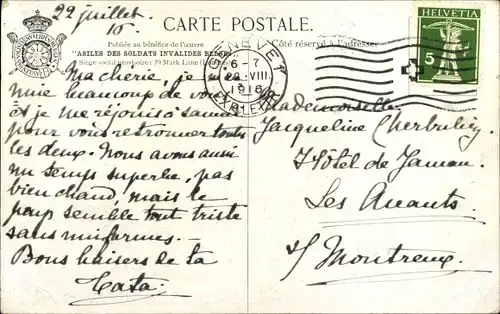 22 juillet.
16.
CARTE POSTALE.
Publiée au bénéfice de l'œuvre
"ASILES DES SOLDATS INVALIDES BELGES"
Siège social provisoire: 79 Mark Lane
Côté réservé à l'adresse
GENÈVE 1
6-7
VIII
1916
HELVETIA
5
Ma chérie, je
beaucoup de
et je me réjouis
pour vous retrouver toutes
les deux. Nous avons aussi
un temps superbe, pas
bien chaud, mais le
pays semble tout triste
sans uniformes.-
Bons baisers de ta
Tata.
Mademoiselle
Jacqueline Cherbuliez
Hôtel de Jaman.
Les Avants
s/ Montreux